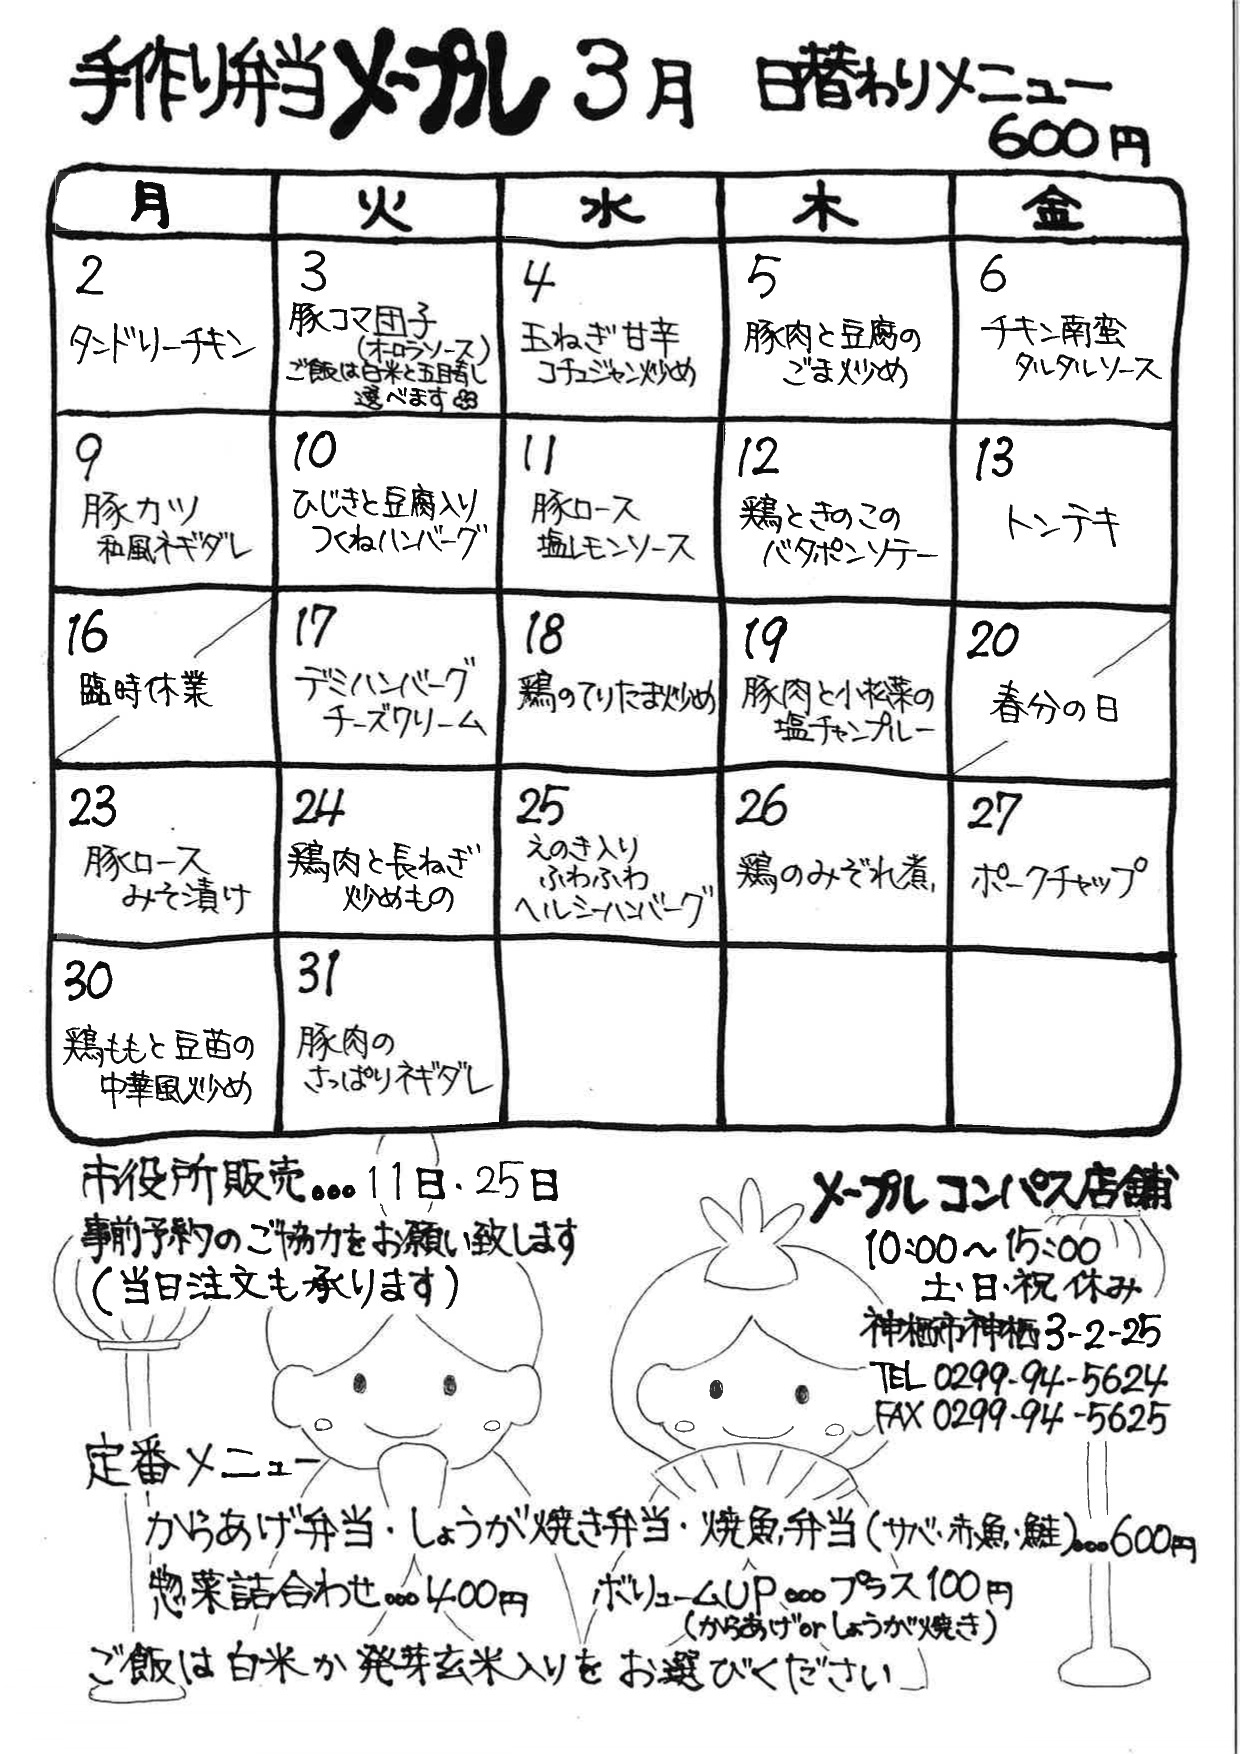 手作り弁当メープル 3月 日替わりメニュー
600円
月 火 水 木 金
2
タンドリーチキン
3
豚コマ団子
(オーロラソース)
ご飯は白米と五目寿し
選べます
4
玉ねぎ甘辛
コチュジャン炒め
5
豚肉と豆腐の
ごま炒め
6
チキン南蛮
タルタルソース
9
豚カツ
和風ネギダレ
10
ひじきと豆腐入り
つくねハンバーグ
11
豚ロース
塩レモンソース
12
鶏ときのこの
バタポンソテー
13
トンテキ
16
臨時休業
17
デミハンバーグ
チーズクリーム
18
鶏のてりたま炒め
19
豚肉と小松菜の
塩チャンプルー
20
春分の日
23
豚ロース
みそ漬け
24
鶏肉と長ねぎ
炒めもの
25
えのき入り
ふわふわ
ヘルシーハンバーグ
26
鶏のみぞれ煮
27
ポークチャップ
30
鶏ももと豆苗の
中華風炒め
31
豚肉の
さっぱりネギダレ
市役所販売...11日・25日
事前予約のご協力をお願い致します
(当日注文も承ります)
メープル コンパス店舗
10:00〜15:00
土・日・祝 休み
神栖市神栖3-2-25
TEL 0299-94-5624
FAX 0299-94-5625
定番メニュー
からあげ弁当・しょうが焼き弁当・焼魚弁当(サバ・赤魚・鮭)...600円
惣菜詰合わせ...400円 ボリュームUP...プラス100円
(からあげorしょうが焼き)
ご飯は白米か発芽玄米入りをお選びください